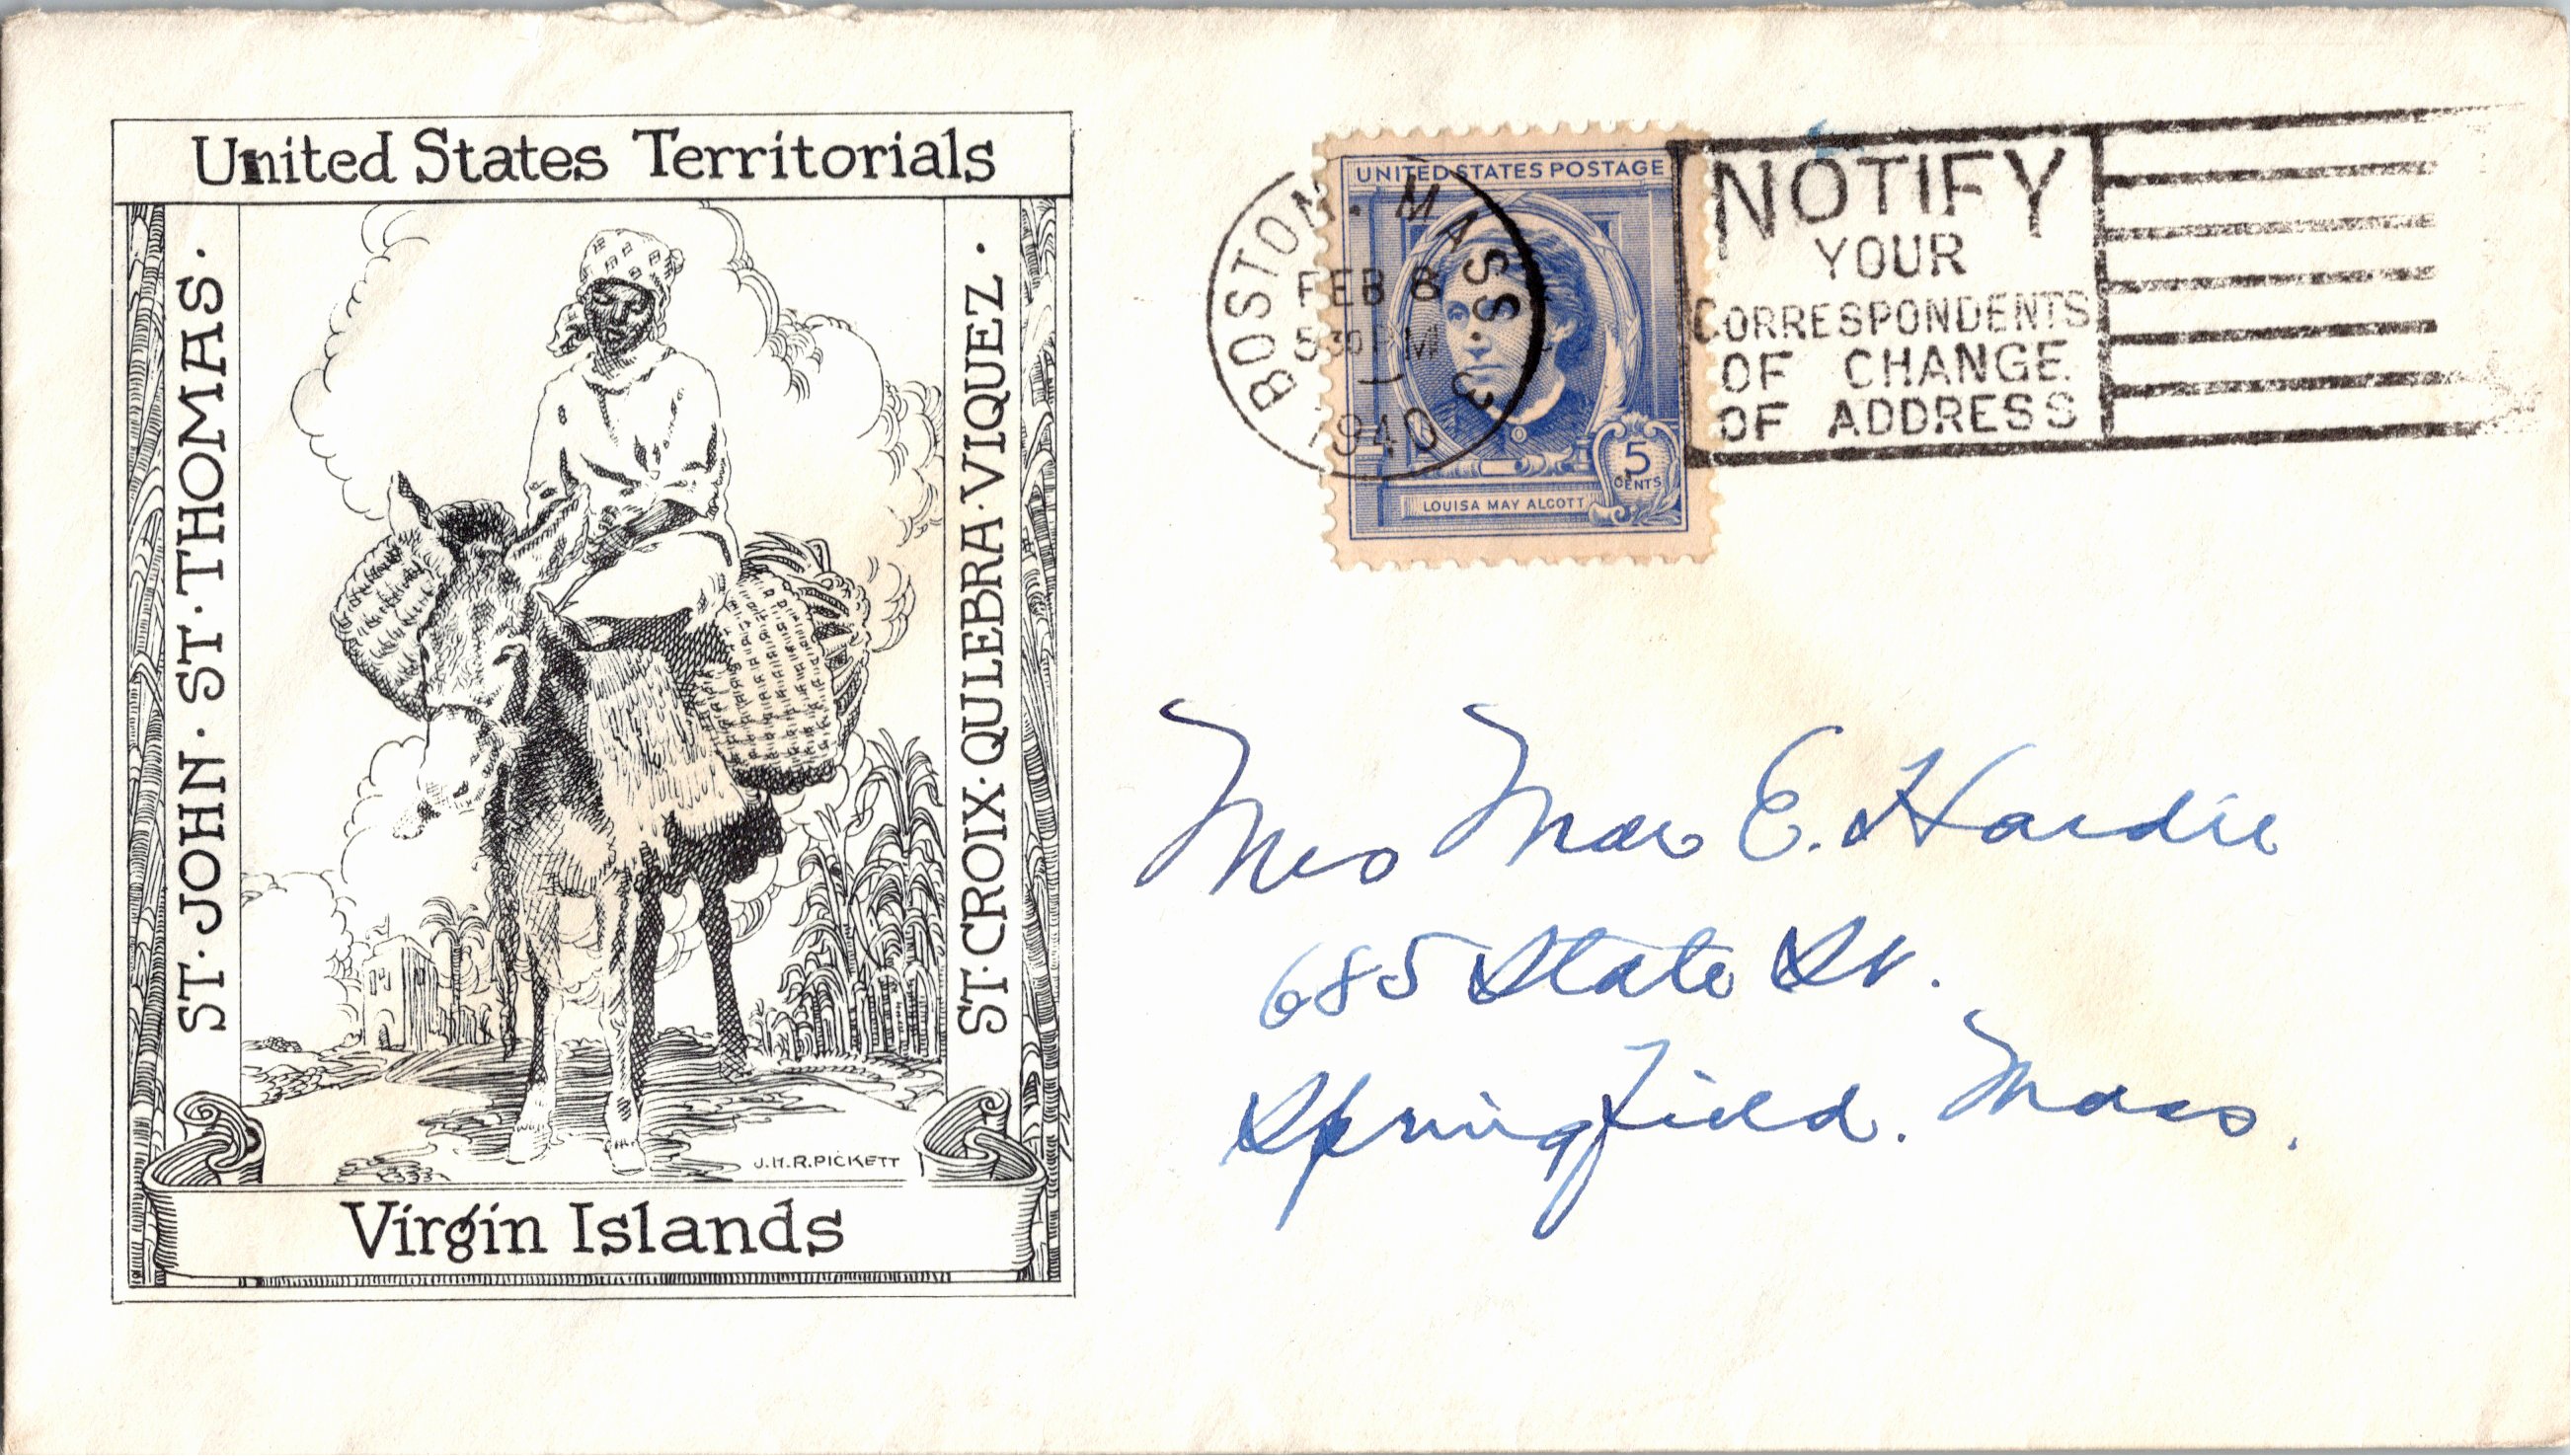 United States Territorials
ST. JOHN · ST. THOMAS ·
ST. CROIX · QULEBRA · VIQUEZ ·
J.H.R. PICKETT
Virgin Islands
BOSTON. MASS. 3
FEB 8
5 30 PM
1940
UNITED STATES POSTAGE
5
CENTS
LOUISA MAY ALCOTT
NOTIFY
YOUR
CORRESPONDENTS
OF CHANGE
OF ADDRESS
Mrs Mae E. Hardie
685 State St.
Springfield. Mass.